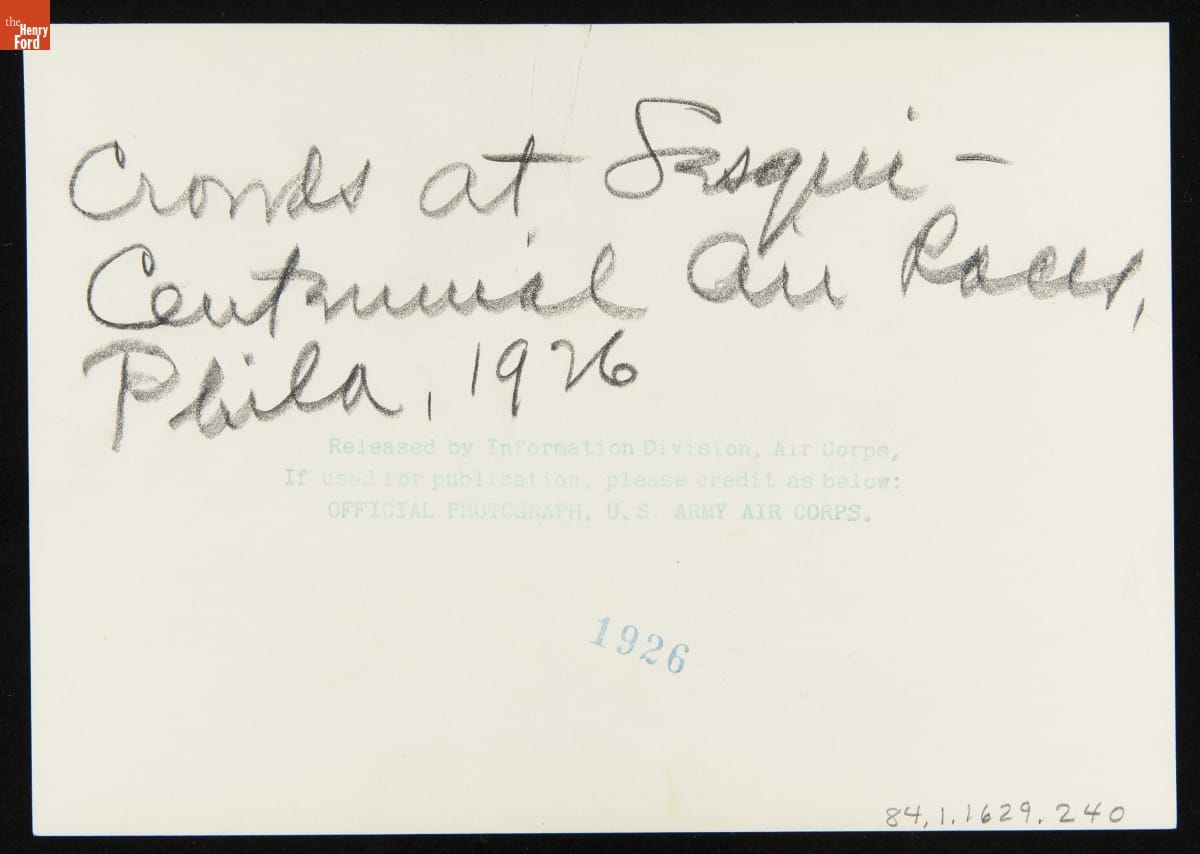 the
Henry
Ford
Crowds at Sesqui-
Centennial Air Races,
Phila, 1926
Released by Information Division, Air Corps,
If used for publication, please credit as below:
OFFICIAL PHOTOGRAPH, U.S. ARMY AIR CORPS.
1926
84.1.1629.240